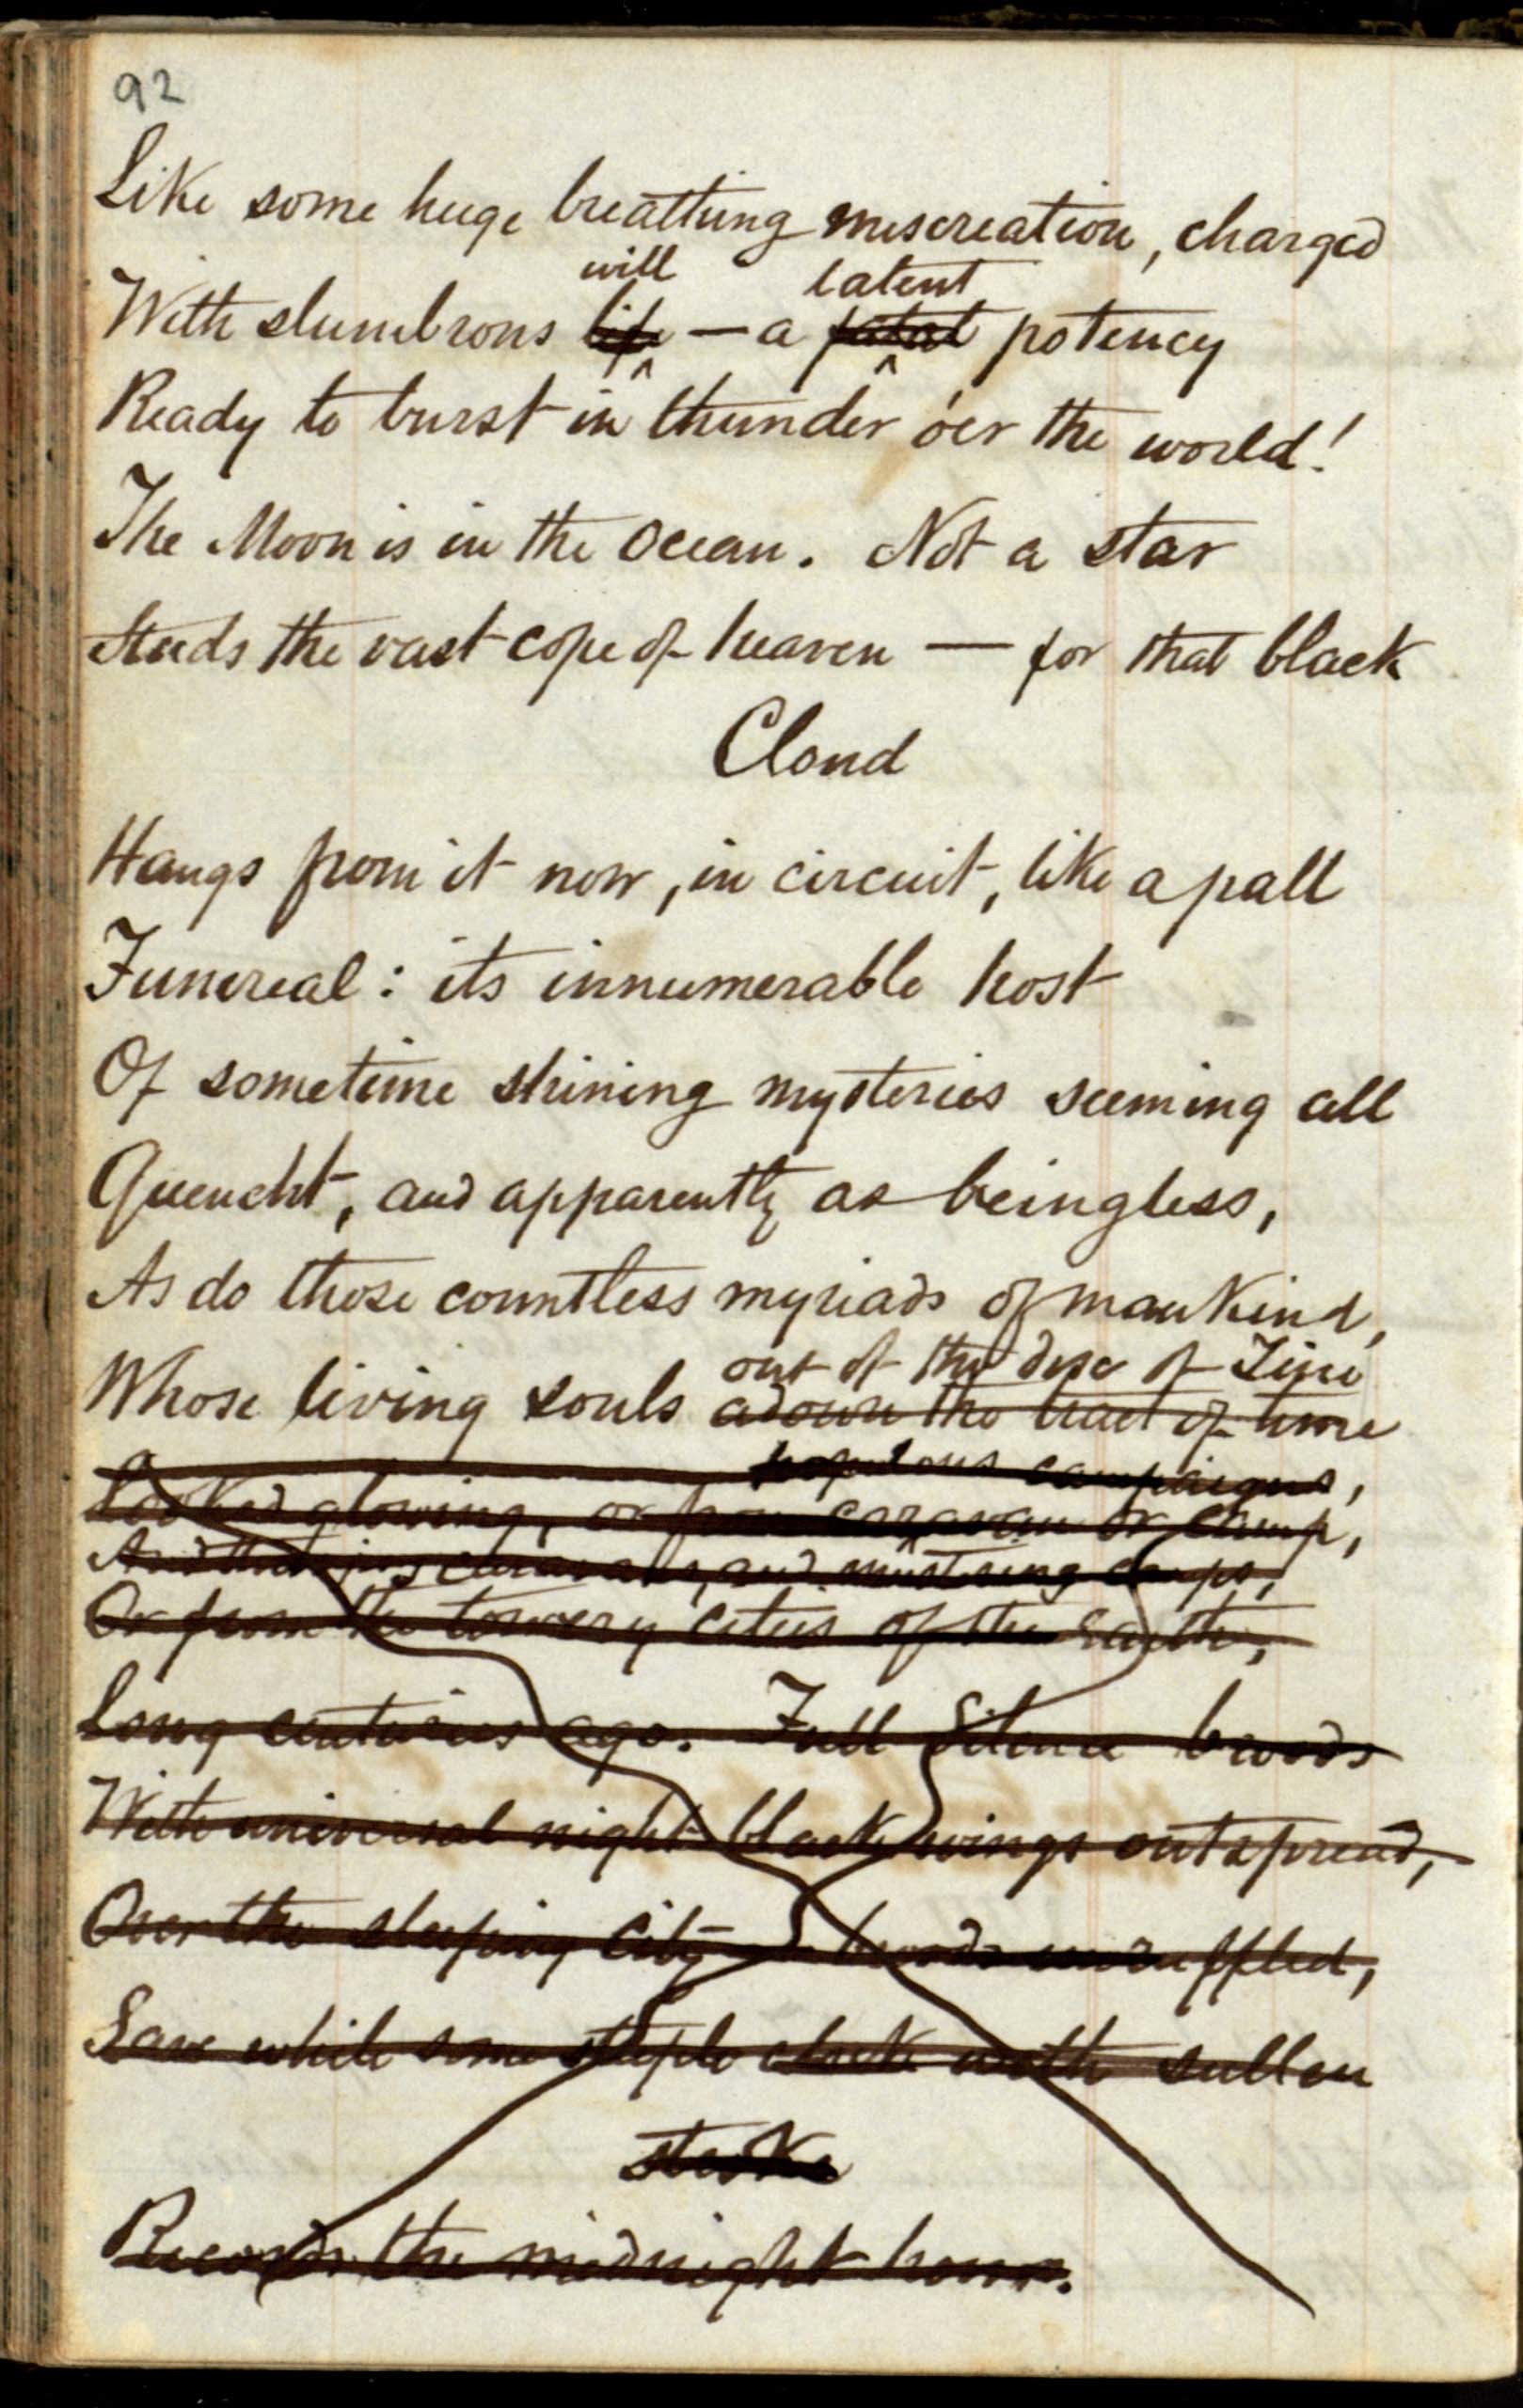 92
Like some huge breathing miscreation, charged
will latent
With slumbrous life — a fatal potency
Ready to burst in thunder o'er the world!
The Moon is in the Ocean. Not a star
Studs the vast cope of heaven — for that black
Cloud
Hangs from it now, in circuit, like a pall
Funereal: its innumerable host
Of sometime shining mysteries seeming all
Quencht, and apparently as beingless,
As do those countless myriads of mankind,
out of the of Time
Whose living souls adown the tract of time
populous campaigns,
Looked glowing, or from caravan or camp,
caravans, and mustering camps,
Or from the towery cities of the Earth,
Long centuries ago. Full Silence broods
With universal night-black wings outspread,
Over the sleeping City broods unruffled,
Save while some steeple clock with sullen
stroke
Records the midnight hour.